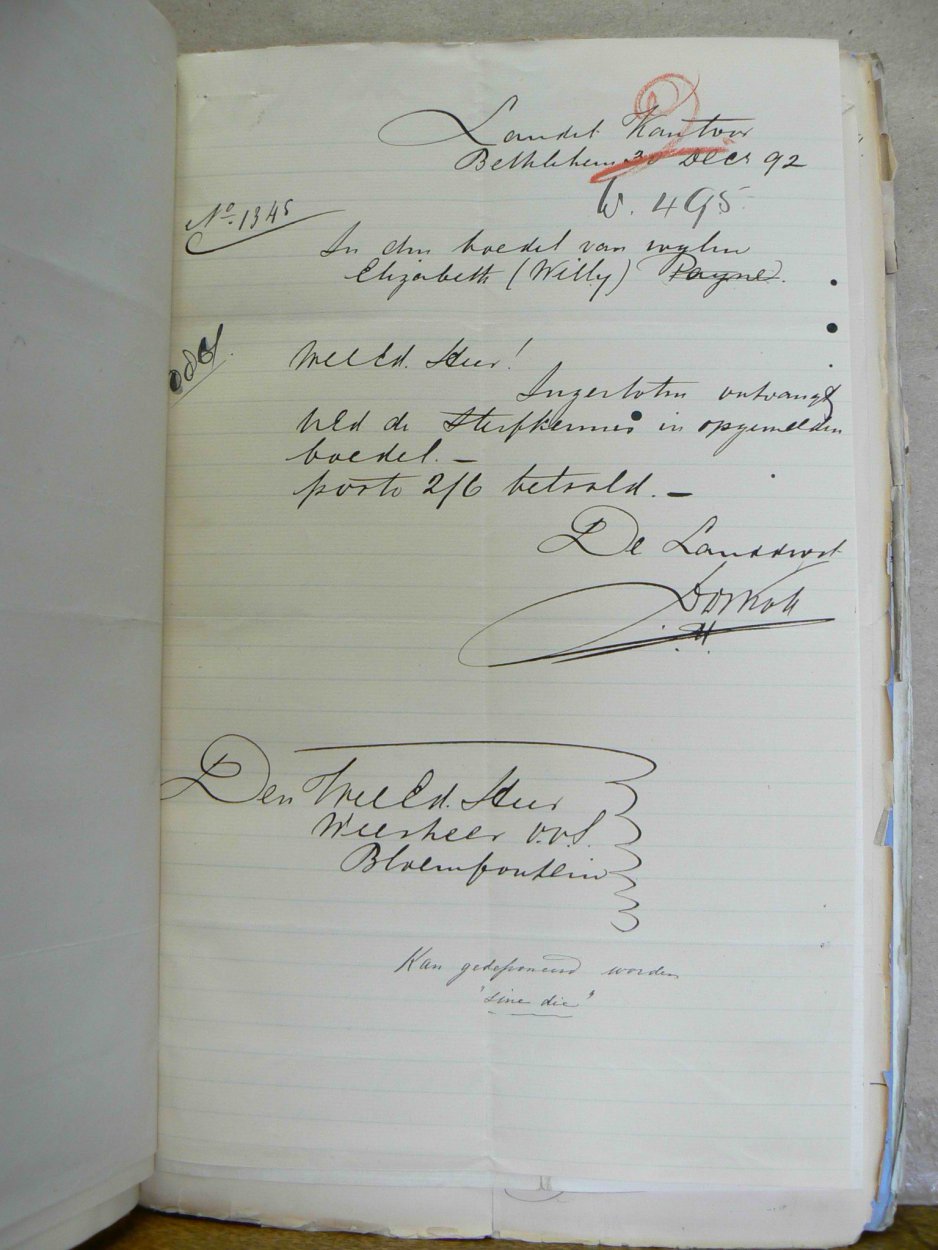 Landdt Kantoor
Bethlehem 30 Decr 92
W. 495.
No. 1345
In den boedel van wylen
Elizabeth (Willy) Payne.
WelEd. Heer!
Ingesloten ontvangt
UEd de Sterfkennis in opgemelden
boedel. —
porto 2/6 betaald. —
De Landdrost
Den WelEd. Heer
Weesheer O.V.S.
Bloemfontein
Kan gedeponeerd worden
"sine die"